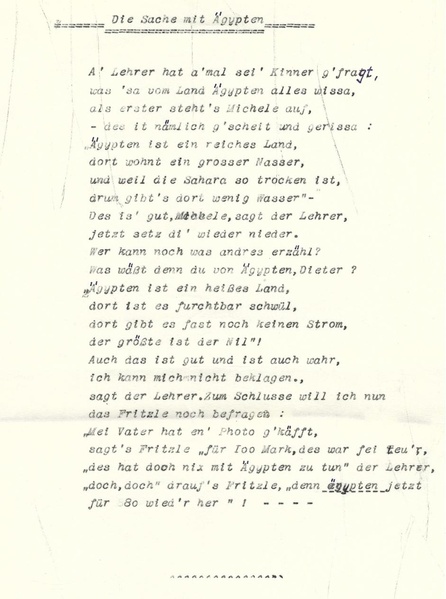 Die Sache mit Ägypten
A' Lehrer hat a'mal sei' Kinner g'fragt,
was 'sa vom Land Ägypten alles wissa,
als erster steht's Michele auf,
- des it nämlich g'scheit und gerissa :
„Ägypten ist ein reiches Land,
dort wohnt ein grosser Nasser,
und weil die Sahara so trocken ist,
drum gibt's dort wenig Wasser"-
Des is' gut,Michele,sagt der Lehrer,
jetzt setz di' wieder nieder.
Wer kann noch was andres erzähl?
Was wäßt denn du von Ägypten,Dieter ?
„Ägypten ist ein heißes Land,
dort ist es furchtbar schwül,
dort gibt es fast noch keinen Strom,
der größte ist der Nil"!
Auch das ist gut und ist auch wahr,
ich kann mich nicht beklagen.,
sagt der Lehrer.Zum Schlusse will ich nun
das Fritzle noch befragen :
„Mei Vater hat en' Photo g'käfft,
sagt's Fritzle „für Ioo Mark,des war fei teu'r,
„des hat doch nix mit Ägypten zu tun" der Lehrer,
„doch,doch" drauf's Fritzle,„denn ägypten jetzt
für 80 wied'r her " ! - - - -